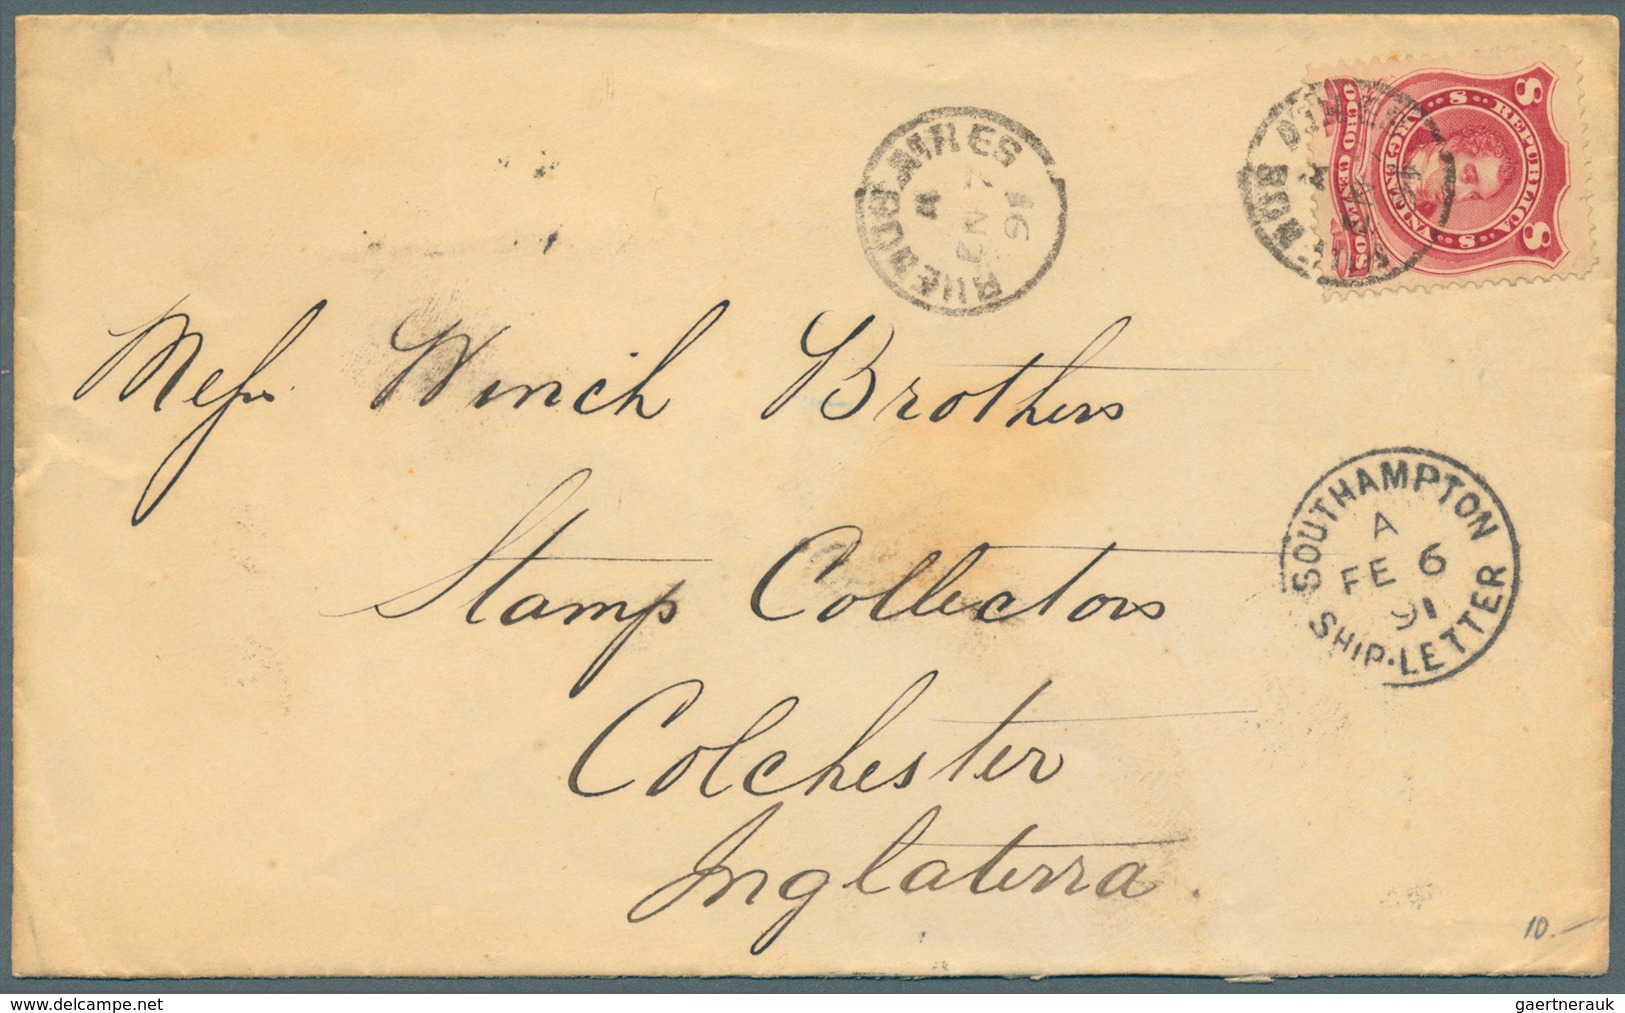 BUENOS AIRES
REPUBLICA ARGENTINA
8 8
OCHO CENTAVOS
Mess Winch Brothers
Stamp Collectors
Colchester
Inglaterra.
SOUTHAMPTON
A
FE 6
91
SHIP-LETTER
10.-
www.delcampe.net
gaertnerauk